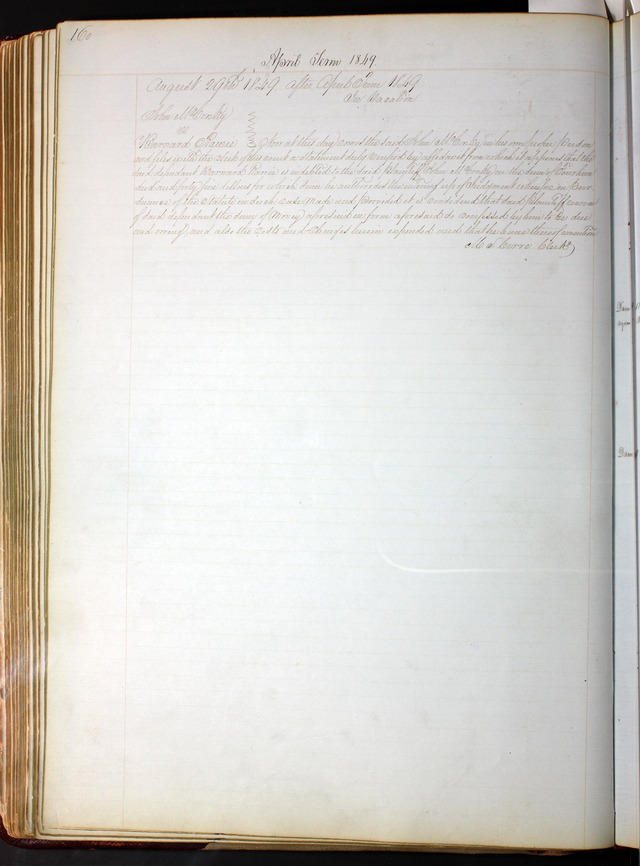 160
April Term 1849
August 29th 1849 after April Term 1849
In Vacation
John McKinsty
vs
Barnard Pawie Now at this day comes the said John McKinsty in his own proper Person
and files with the clerk of this court a statement duly verified by affidavit from which it appears that the
said defendant Barnard Pawie is indebted to the said Plaintiff John McKinsty in the sum of Four hun
dred and forty five dollars for which sum he authorizes the entering up of Judgment against him in Pur
suance of the Statute in such case made and provided it is considered that said Plaintiff recover
of said defendant the sum of Money aforesaid in form aforesaid so confessed by him to be due
and owing and also the costs and charges herein expended and that he have thereof execution
Clerk